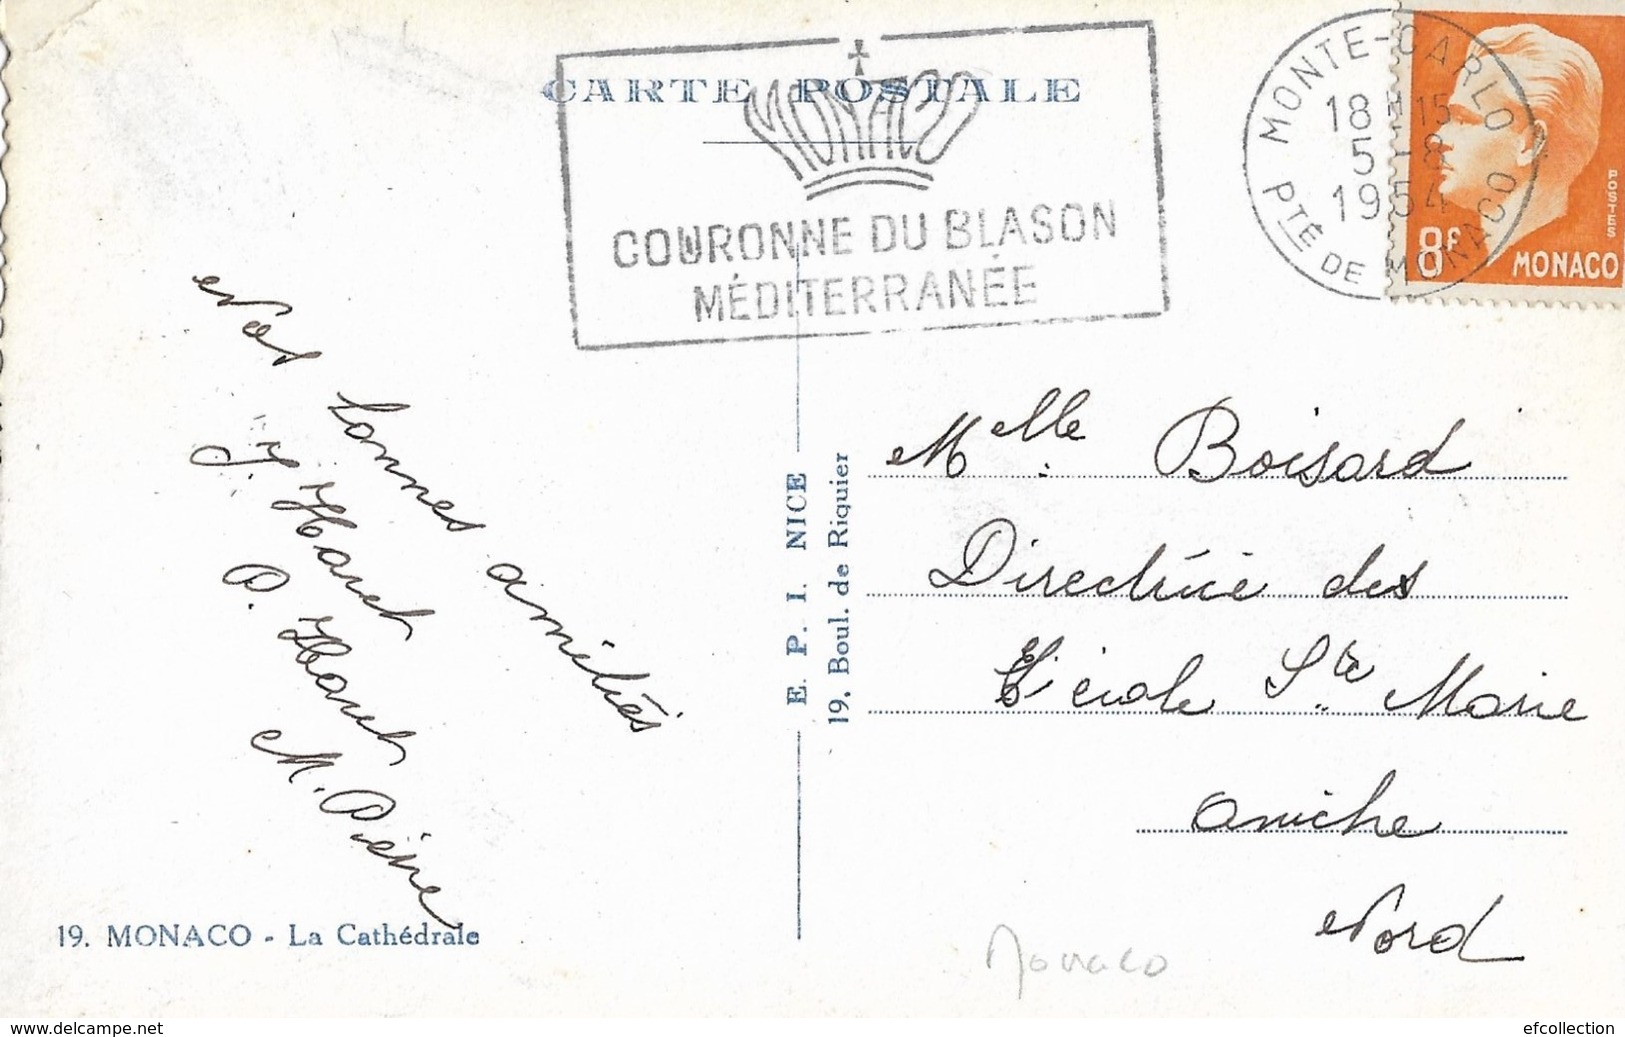 CARTE POSTALE
MONACO
COURONNE DU BLASON
MÉDITERRANÉE
MONTE-CARLO
18 H 15
5 -8
1954
PTÉ DE MONACO
POSTES
8F MONACO
Nos bonnes amitiés
P.
M. Pierre
E. P. I. NICE
19, Boul. de Riquier
Melle Boisard
Directrice des
école Ste Marie
Aniche
Nord
19. MONACO - La Cathédrale
Monaco
www.delcampe.net
efcollection